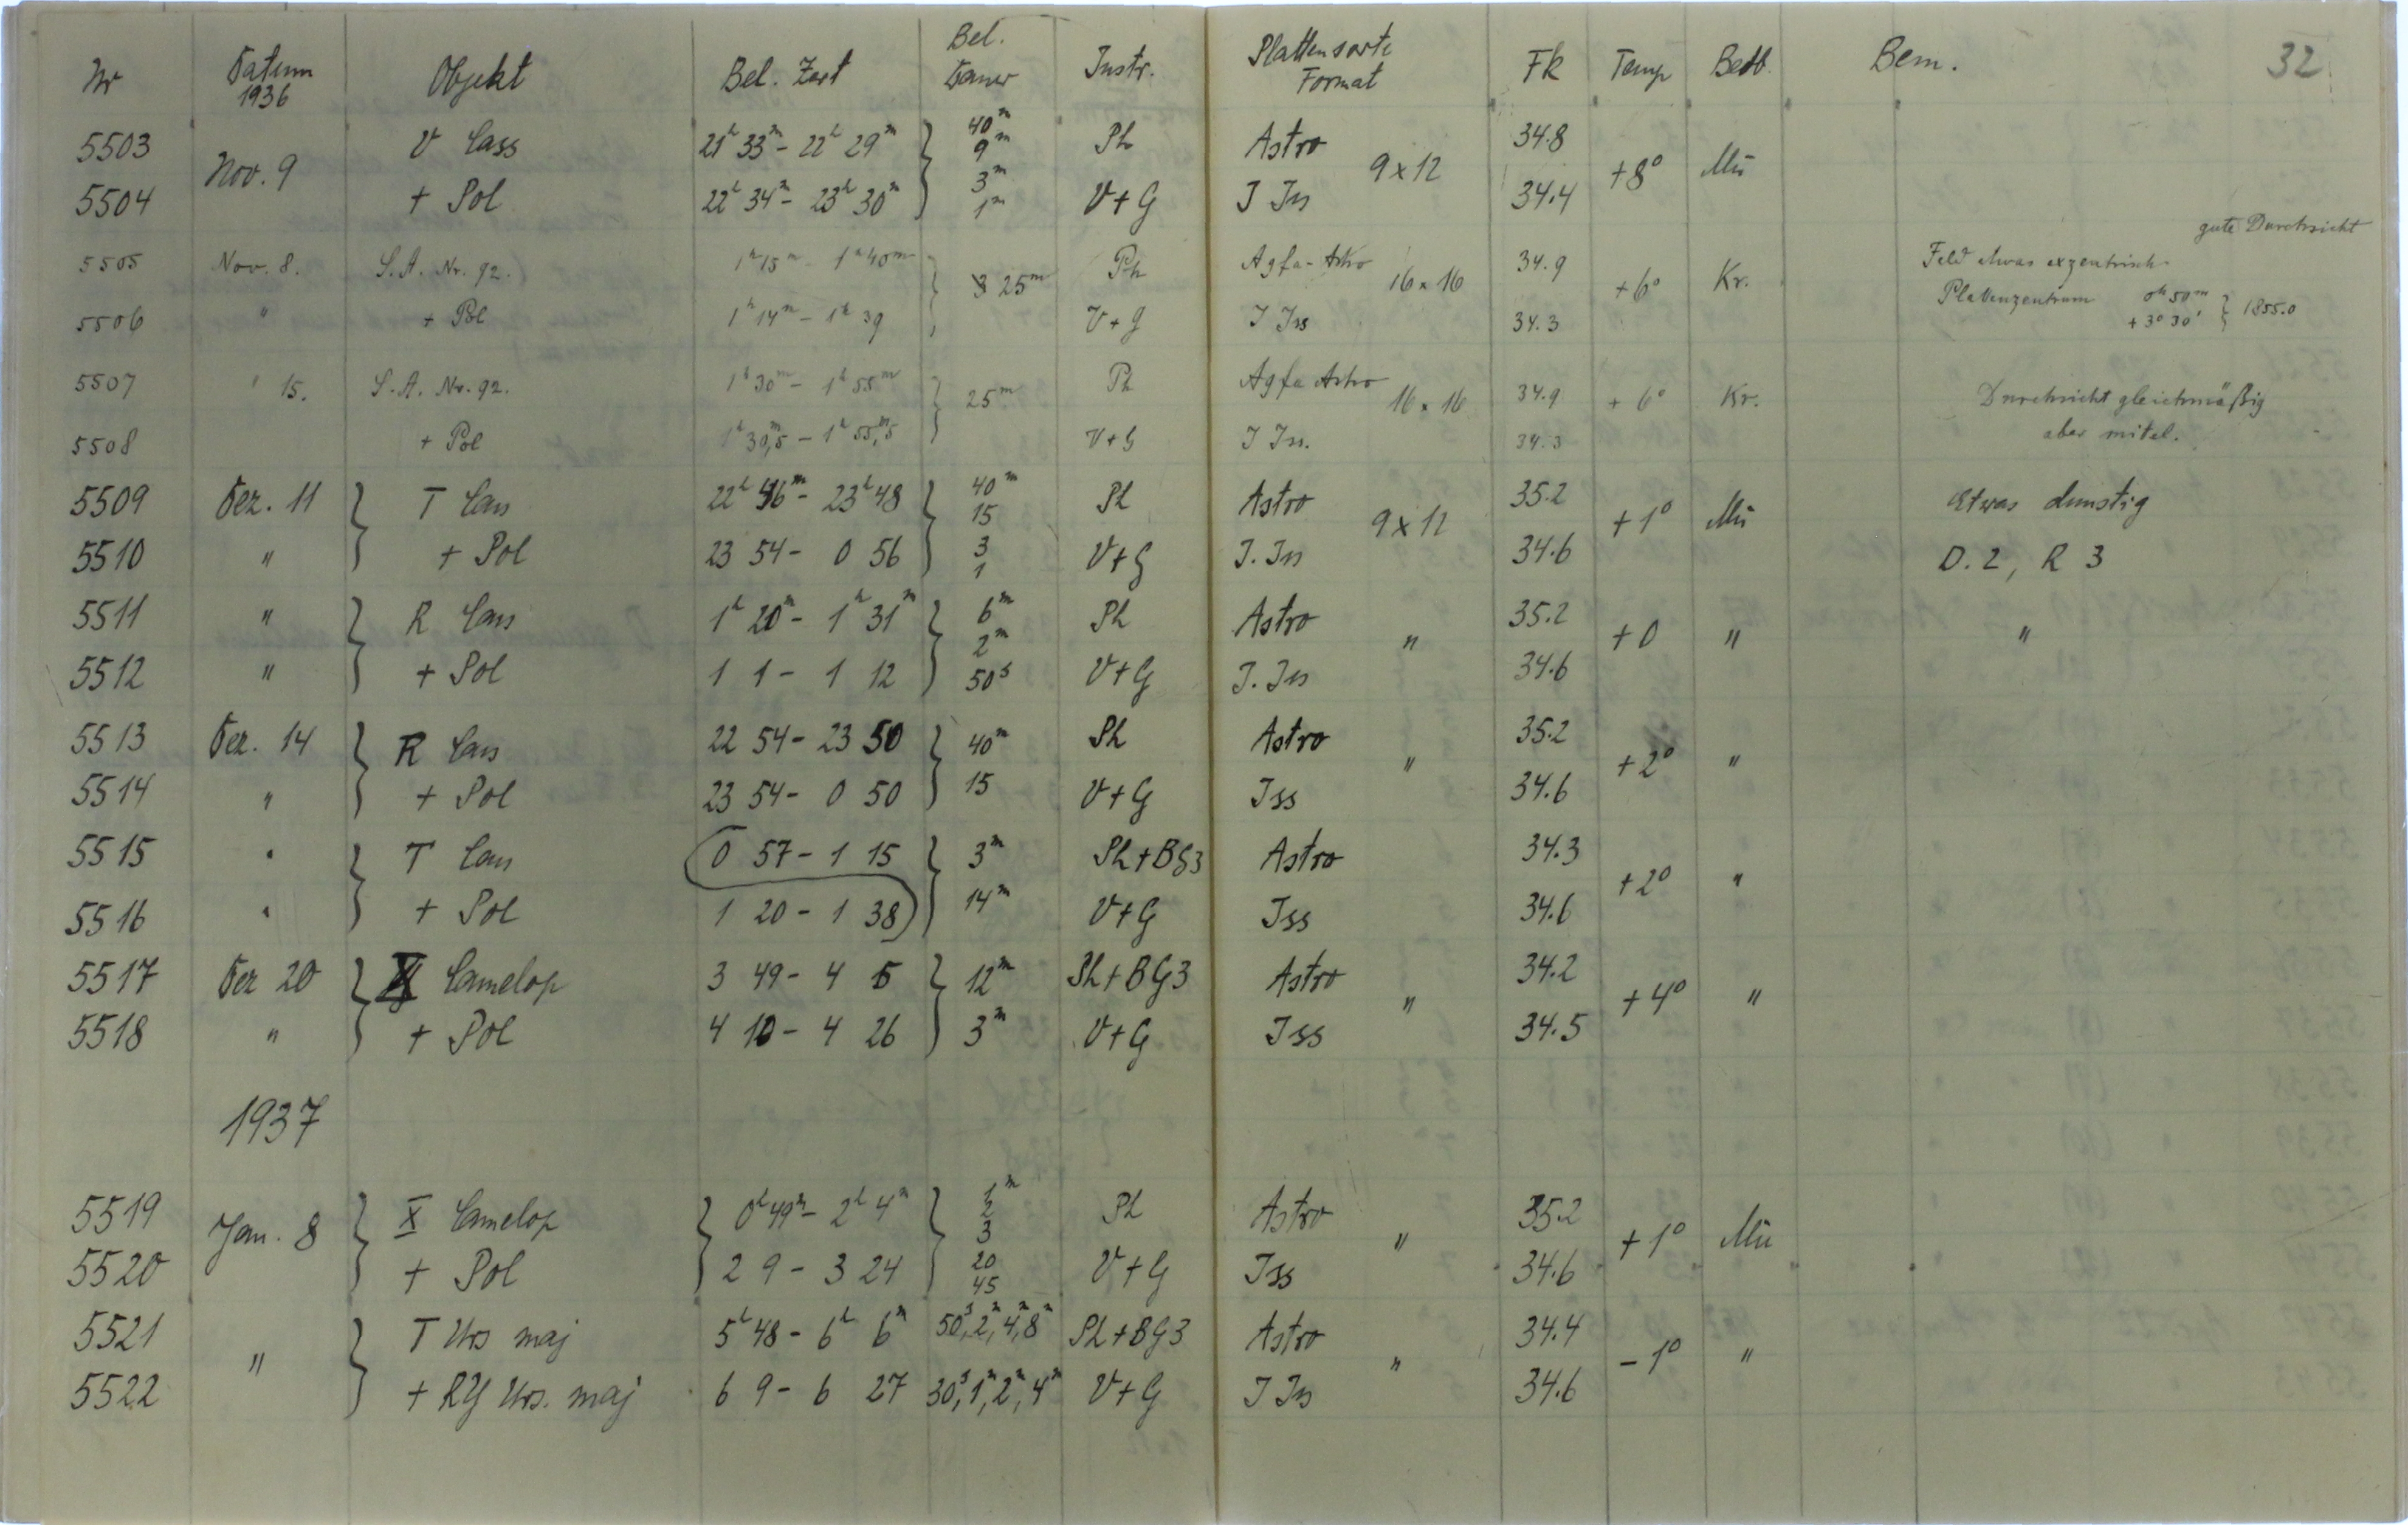 Nr Datum 1936 Objekt Bel. Zeit Bel. Dauer Instr. Plattensorte Format Fk Temp Beob. Bem. 32
5503 Nov. 9 V Cass 21h 33m - 22h 29m 40m 9m Ph Astro 9 x 12 34.8 +8° Mü
5504 + Pol 22h 34m - 23h 30m 3m 1m V+G I Iss 34.4
gute Durchsicht
5505 Nov. 8. S.A. Nr. 92. 1h 15m - 1h 40m 25m Ph Agfa-Astro 16 x 16 34.9 +6° Kr. Feld etwas exzentrisch
5506 " + Pol 1h 14m - 1h 39 V+G I Iss 34.3 Plattenzentrum 0h 50m + 3° 30' } 1855.0
5507 " 15. S.A. Nr. 92. 1h 30m - 1h 55m 25m Ph Agfa Astro 16 x 16 34.9 + 6° Kr. Durchsicht gleichmäßig
5508 + Pol 1h 30,m5 - 1h 55,m5 V+G I Iss. 34.3 aber mitel.
5509 Dez. 11 } T Cass 22h 46m - 23h 48 40m 15 Ph Astro 9 x 12 35.2 +1° Mü Etwas dunstig
5510 " + Pol 23 54 - 0 56 3 1 V+G I. Iss 34.6 D. 2, R 3
5511 " } R Cass 1h 20m - 1h 31m 6m 2m Ph Astro " 35.2 +0 " "
5512 " + Pol 1 1 - 1 12 50s V+G I. Iss 34.6
5513 Dez. 14 } R Cass 22 54 - 23 50 40m Ph Astro " 35.2 +2° "
5514 " + Pol 23 54 - 0 50 15 V+G Iss 34.6
5515 " } T Cass 0 57 - 1 15 3m Ph+BG3 Astro 34.3 +2° "
5516 " + Pol 1 20 - 1 38 14m V+G Iss 34.6
5517 Dez 20 } X Camelop 3 49 - 4 5 12m Ph+BG3 Astro " 34.2 +4° "
5518 " + Pol 4 10 - 4 26 3m V+G Iss 34.5
1937
5519 Jan. 8 } X Camelop 0h 49m - 2h 4m 1m 2 3 Ph Astro " 35.2 +1° Mü
5520 + Pol 2 9 - 3 24 20 45 V+G Iss 34.6
5521 " } T Urs maj 5h 48 - 6h 6m 50s, 2m, 4m, 8m Ph+BG3 Astro " 34.4 -1° "
5522 + RY Urs. maj 6 9 - 6 27 30s, 1m, 2m, 4m V+G I Iss 34.6